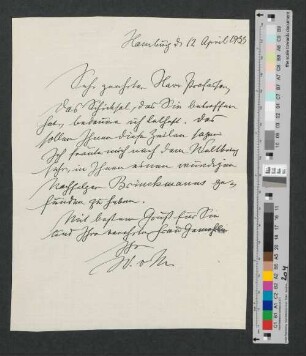 Hamburg d. 12. April 1933
Sehr geehrter Herr Professor,
das Schicksal, das Sie betroffen
hat, bedaure ich lebhaft. Das
sollen Ihnen diese Zeilen sagen.
Ich freute mich nach dem Weltkrieg
sehr, in Ihnen einen würdigen
Nachfolger Brinckmanns ge-
funden zu haben.
Mit bestem Gruß für Sie
und Ihre verehrte Frau Gemahlin
Ihr